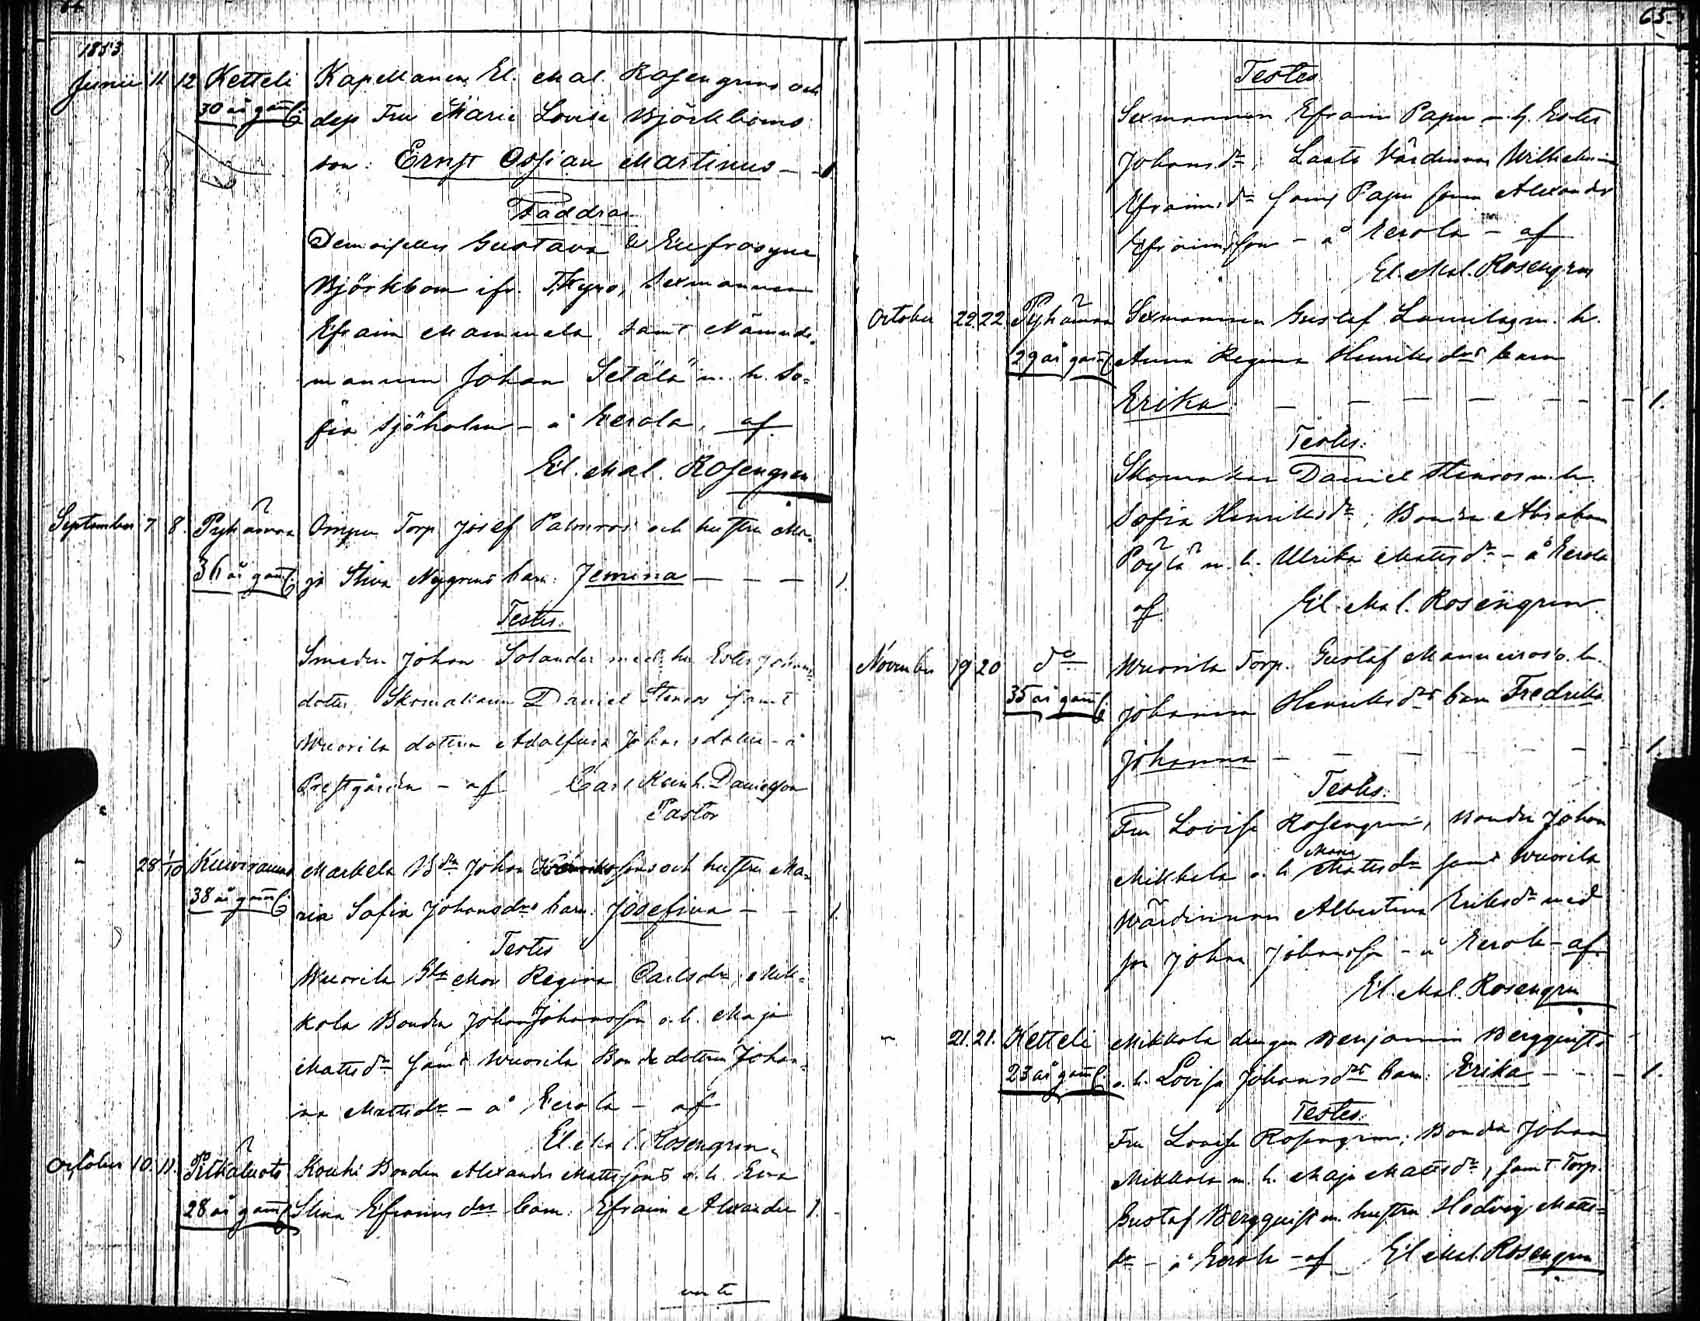 1853
Junii 11 12 Ketteli Kapellanen El. Mal. Rosengrens och
30 år gaml. dess Fru Marie Lovise Björkboms
son: Ernst Ossian Martinus — 1.
Faddrar
Demoiseller Gustava & Eufrosyne
Björkbom ifr. Tyrvo, Sexmannen
Efraim Mammela samt Nämnde-
mannen Johan Setälä m. h. So-
fia Sjöholm — å Kerola, af
El. Mal. Rosengren
September 7 8. Pyhämaa Torp. Josef Palmros och hustru Ma-
36 år gaml. ja Stina Nygrens barn: Jemina — — — 1.
Testes:
Smeden Johan Solander med hu Ester Johans
dotter, Skomakaren Daniel Stenros samt
Wuorila dottren Adolfina Johansdotter — å
Prestgården — af Carl Danielson
Pastor
28 1/10 Kuivraumo Markela Bdn Johan sons och hustru Ma-
38 år gaml. ria Sofia Johansdrs barn: Josefina — — 1.
Testes
Wuorila Mor Regina Carlsdr, Mik-
kola Bonden Johan Johansson o. h. Maja
Mattsdr samt Wuorila Bonde dottren Johan-
na Mattsdr — å Kerola — af
El. Mal. Rosengren
October 10. 11. Pitkäluoto Kouki Bonden Alexander Mattssons o. h. Eva
28 år gaml. Stina Efraimsdrs barn: Efraim Alexander 1.
verte
65.
Testes
Sexmannen Efraim Papu m. h. Ester
Johansdr, Laats Värdinnan Wilhelmina
Efraimsdr samt Papu sonen Alexander
Efraimsson — å Kerola — af
El. Mal. Rosengren
October 22. 22. Pyhämaa Sexmannen Gustaf Laurilas m. h.
29 år gaml. Anna Regina Henriksdrs barn
Erika — — — — — 1.
Testes:
Skomakar Daniel Stenros m. h.
Sofia Henriksdr, Bonden Abraham
Pöylä m. h. Ulrika Mattsdr — å Kerola
af El. Mal. Rosengren.
November 19 20 do Wuorila Torp. Gustaf o. h.
35 år gaml. Johanna Henriksdrs barn Fredrika
Johanna — — — — 1.
Testes:
Fru Lovisa Rosengren, Bonden Johan
Mikkola o. h. Maria Mattsdr samt Wuorila
Wärdinnan Albertina Eriksdr med
son Johan Johansson — å Kerola — af
El. Mal. Rosengren
21. 21. Ketteli Mikkola drengen Benjamin Bergqvists
23 år gaml. o. h. Lovisa Johansdrs barn: Erika — — 1.
Testes:
Fru Lovisa Rosengren, Bonden Johan
Mikkola m. h. Maja Mattsdr, samt Torp.
Gustaf Bergqvist m. hustru Hedvig Matts-
dr — å Kerola — af El. Mal. Rosengren